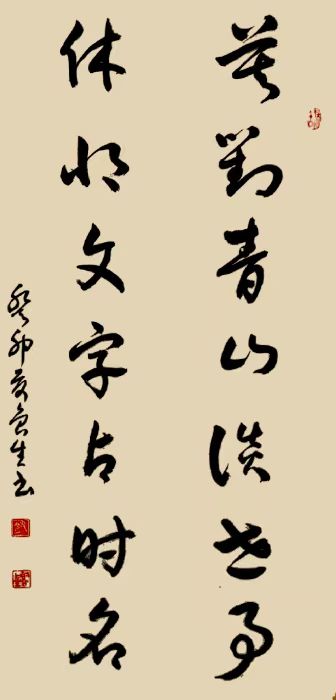 莫对青山谈世事
休将文字占时名
癸卯夏负生书